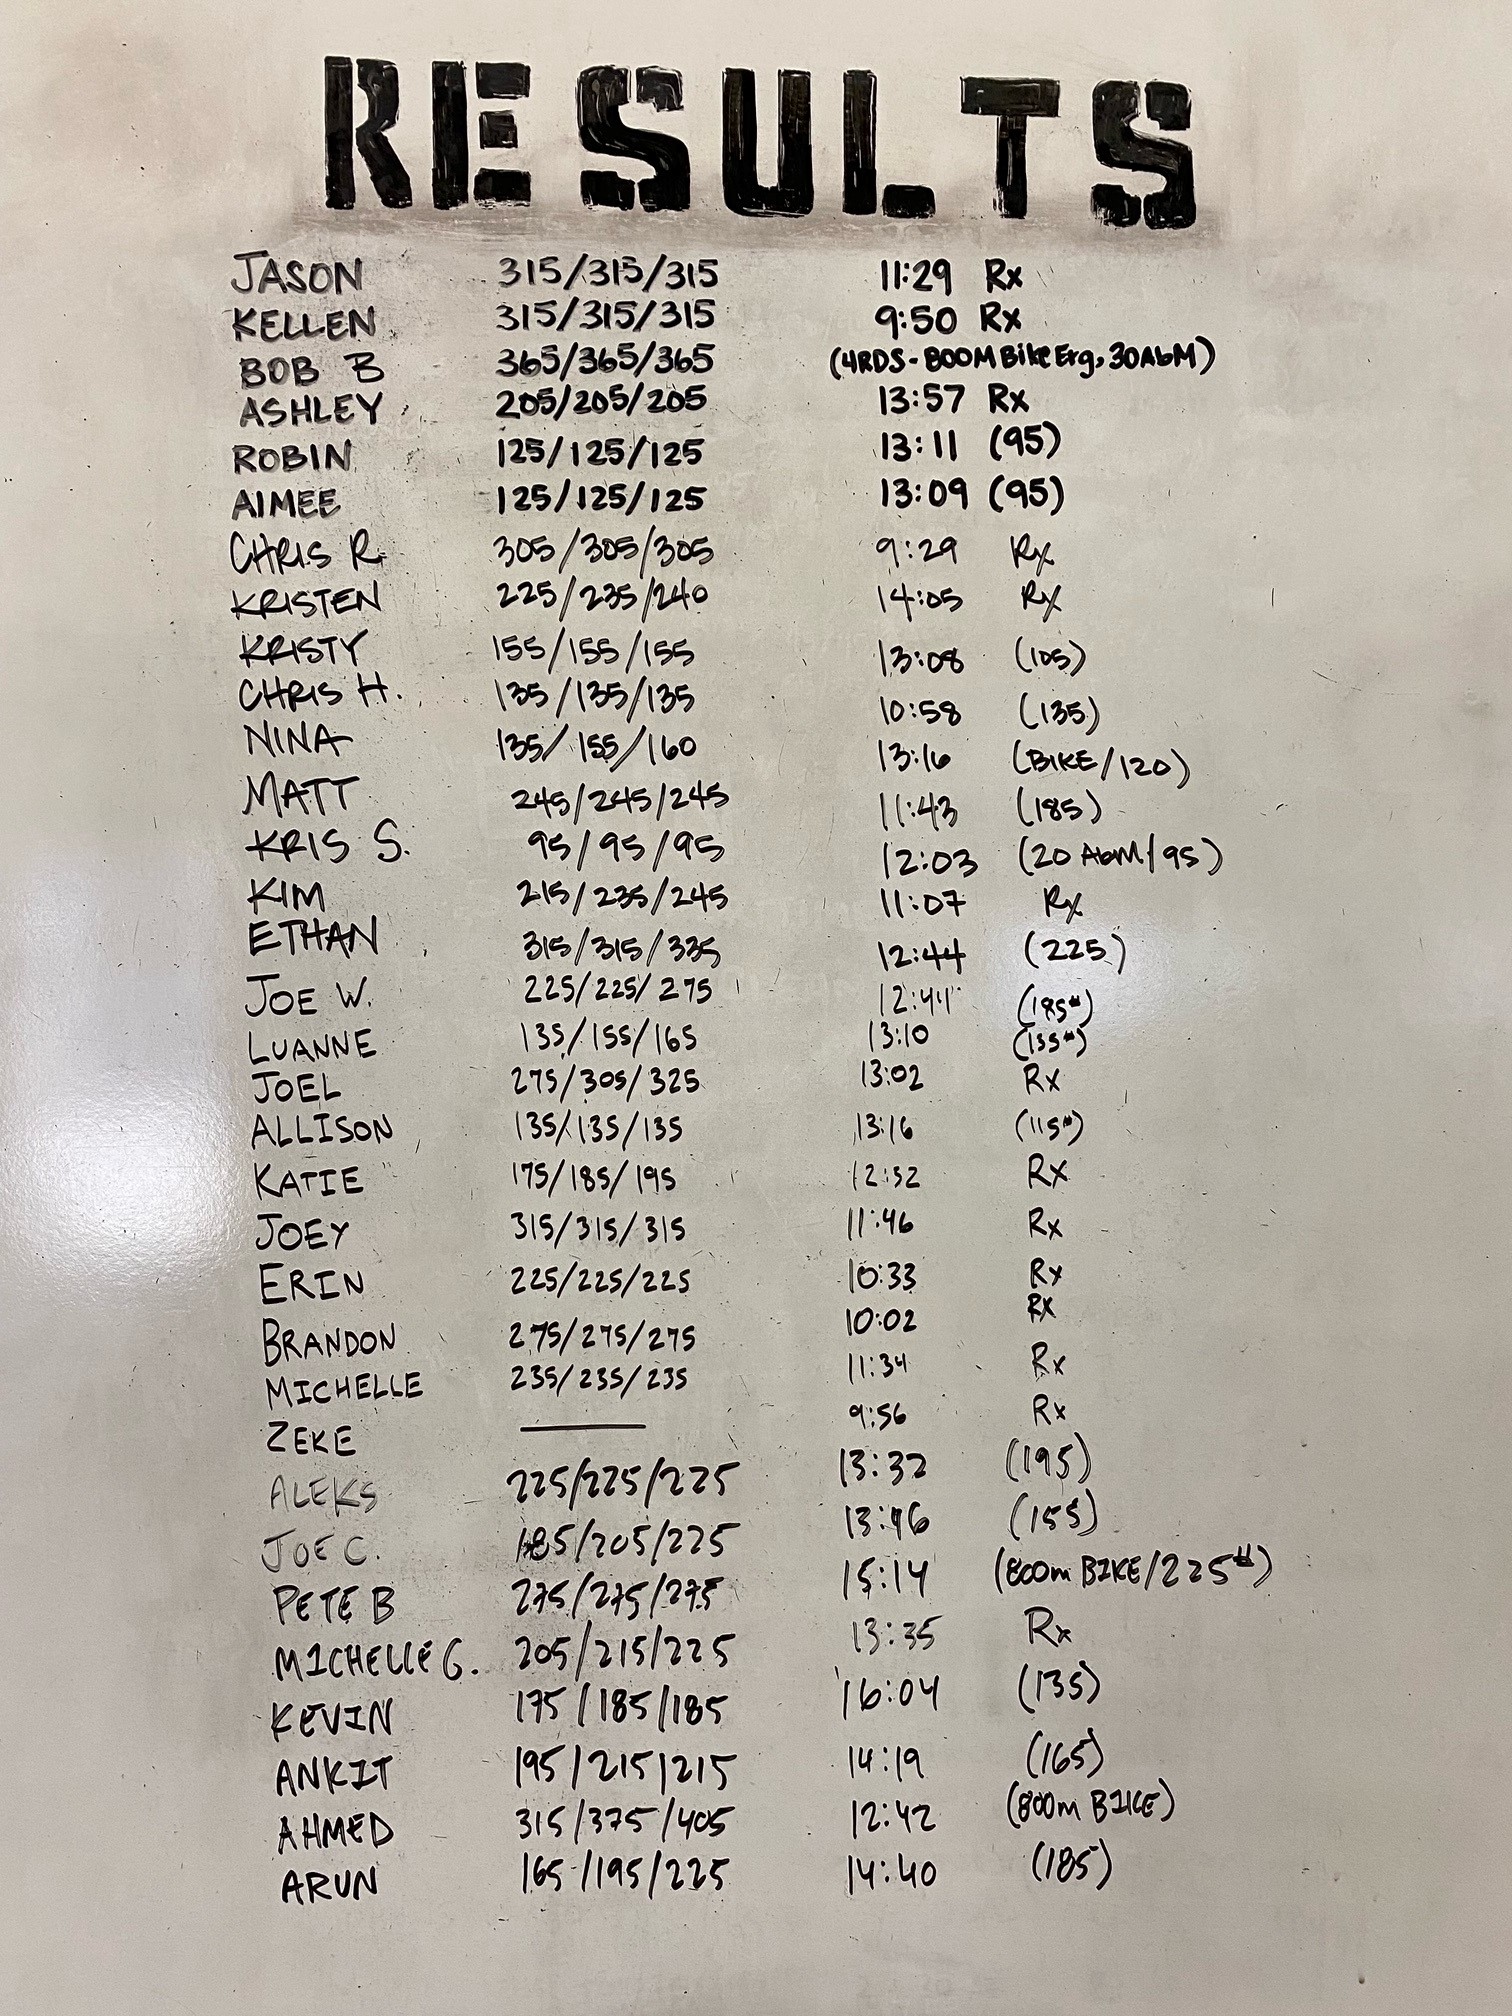 RESULTS
JASON 315/315/315 11:29 Rx
KELLEN 315/315/315 9:50 Rx
BOB B 365/365/365 (4RDS-800M Bike Erg, 30AbM)
ASHLEY 205/205/205 13:57 Rx
ROBIN 125/125/125 13:11 (95)
AIMEE 125/125/125 13:09 (95)
CHRIS R 305/305/305 9:29 Rx
KRISTEN 225/235/240 14:05 Rx
KRISTY 155/155/155 13:08 (105)
CHRIS H. 135/135/135 10:58 (135)
NINA 135/155/160 13:16 (BIKE/120)
MATT 245/245/245 11:43 (185)
KRIS S. 95/95/95 12:03 (20 AbM/95)
KIM 215/235/245 11:07 Rx
ETHAN 315/315/335 12:44 (225)
JOE W. 225/225/275 12:44 (185#)
LUANNE 135/155/165 13:10 (135#)
JOEL 275/305/325 13:02 Rx
ALLISON 135/135/135 13:16 (115#)
KATIE 175/185/195 12:32 Rx
JOEY 315/315/315 11:46 Rx
ERIN 225/225/225 10:33 Rx
BRANDON 275/275/275 10:02 Rx
MICHELLE 235/235/235 11:34 Rx
ZEKE — 9:56 Rx
ALEKS 225/225/225 13:32 (195)
JOE C. 185/205/225 13:46 (155)
PETE B 275/275/275 15:14 (800m BIKE/225#)
MICHELLE G. 205/215/225 13:35 Rx
KEVIN 175/185/185 16:04 (135)
ANKIT 195/215/215 14:19 (165)
AHMED 315/375/405 12:42 (800m BIKE)
ARUN 165/195/225 14:40 (185)